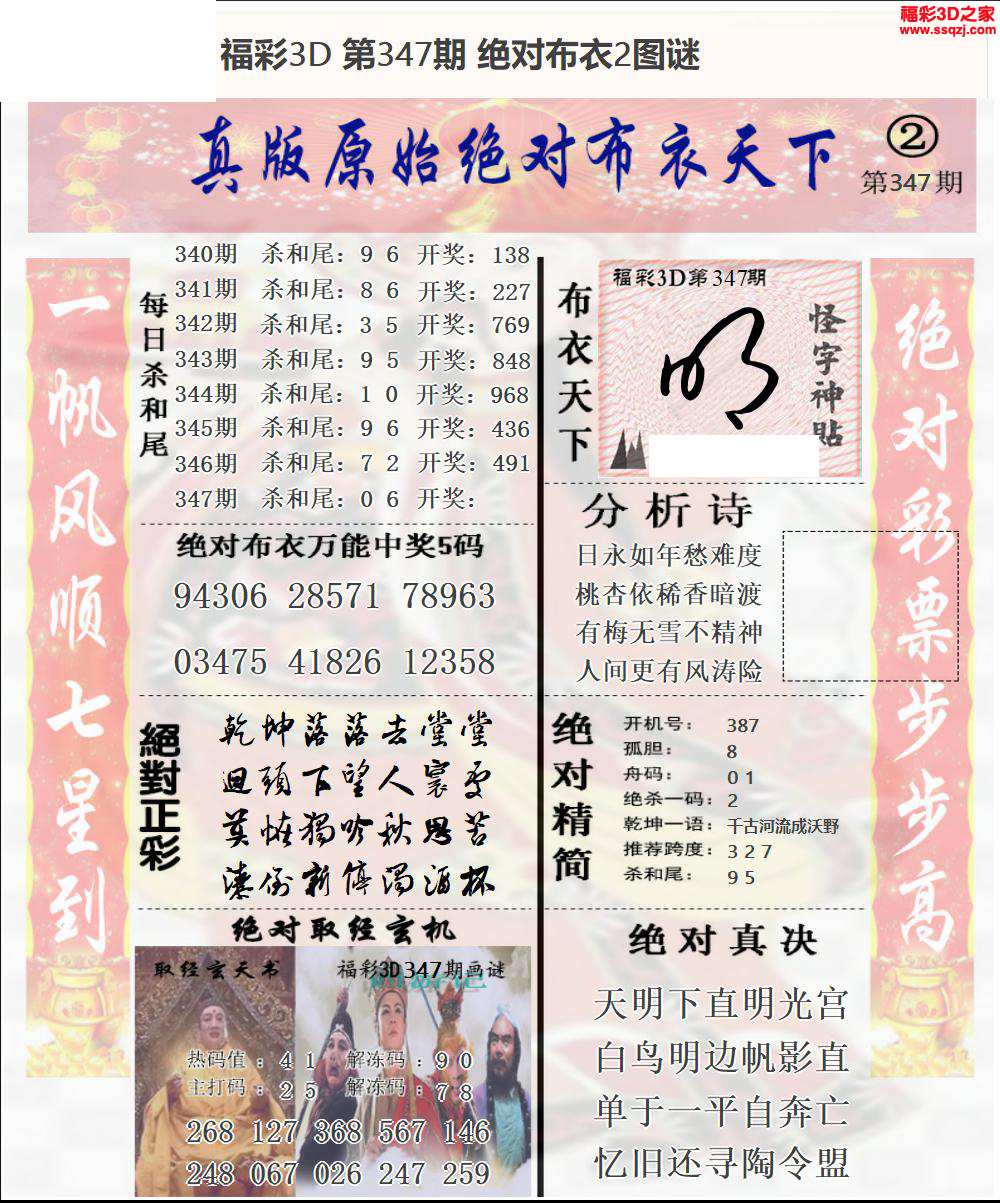 福彩3D之家
www.ssqzj.com
福彩3D 第347期 绝对布衣2图谜
真版原始绝对布衣天下
②
第347期
一帆风顺七星到
每日杀和尾
340期 杀和尾：9 6 开奖：138
341期 杀和尾：8 6 开奖：227
342期 杀和尾：3 5 开奖：769
343期 杀和尾：9 5 开奖：848
344期 杀和尾：1 0 开奖：968
345期 杀和尾：9 6 开奖：436
346期 杀和尾：7 2 开奖：491
347期 杀和尾：0 6 开奖：
绝对布衣万能中奖5码
94306 28571 78963
03475 41826 12358
絕對正彩
乾坤落落去堂堂
迴頭下望人寰
莫惟獨吟秋思苦
倒新停濁酒杯
绝对取经玄机
取经玄天书
福彩3D347期画谜
热码值：4 1 解冻码：9 0
主打码：2 5 解冻码：7 8
268 127 368 567 146
248 067 026 247 259
布衣天下
福彩3D第347期
怪字神贴
分析诗
日永如年愁难度
桃杏依稀香暗渡
有梅无雪不精神
人间更有风涛险
绝对精简
开机号： 387
孤胆： 8
舟码： 0 1
绝杀一码： 2
乾坤一语： 千古河流成沃野
推荐跨度： 3 2 7
杀和尾： 9 5
绝对真决
天明下直明光宫
白鸟明边帆影直
单于一平自奔亡
忆旧还寻陶令盟
绝对彩票步步高